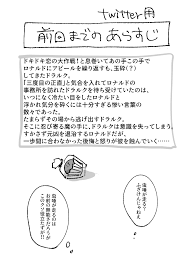 twitter用
前回までのあらすじ
ドキドキ恋の大作戦！と息巻いてあの手この手で
ロナルドにアピールを繰り返すも、玉砕(？)
してきたドラルク。
「三度目の正直」と気合を入れてロナルドの
事務所を訪れたドラルクを待ち受けていたのは、
いつになく冷たい目をしたロナルドと
浮かれ気分を砕くには十分すぎる惨い言葉の
数々であった。
たまらずその場から逃げ出すドラルク。
そこに忍び寄る魔の手に、ドラルクは意識を失ってしまう。
すかさず元凶を退治するロナルドだが、
一歩間に合わなかった後悔と怒りが彼を蝕んでいく……